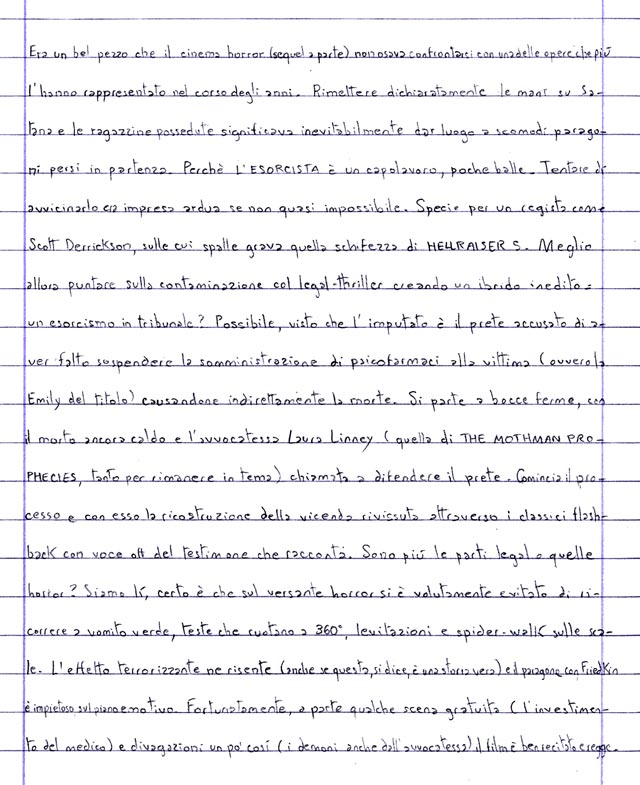 Era un bel pezzo che il cinema horror (sequel a parte) non osava confrontarsi con una delle opere che più
l'hanno rappresentato nel corso degli anni. Rimettere dichiaratamente le mani su Sa-
tana e le ragazzine possedute significava inevitabilmente dar luogo a scomodi parago-
ni persi in partenza. Perchè L'ESORCISTA è un capolavoro, poche balle. Tentare di
avvicinarlo era impresa ardua se non quasi impossibile. Specie per un regista come
Scott Derrickson, sulle cui spalle grava quella schifezza di HELLRAISER 5. Meglio
allora puntare sulla contaminazione col legal-thriller creando un ibrido inedito:
un esorcismo in tribunale? Possibile, visto che l'imputato è il prete accusato di a-
ver fatto sospendere la somministrazione di psicofarmaci alla vittima (ovvero la
Emily del titolo) causandone indirettamente la morte. Si parte a bocce ferme, con
il morto ancora caldo e l'avvocatessa Laura Linney (quella di THE MOTHMAN PRO-
PHECIES, tanto per rimanere in tema) chiamata a difendere il prete. Comincia il pro-
cesso e con esso la ricostruzione della vicenda rivissuta attraverso i classici flash-
back con voce off del testimone che racconta. Sono più le parti legal o quelle
horror? Siamo lì, certo è che sul versante horror si è volutamente evitato di ri-
correre a vomito verde, teste che ruotano a 360°, levitazioni e spider-walk sulle sca-
le. L'effetto terrorizzante ne risente (anche se questa, si dice, è una storia vera) ed il paragone con Friedkin
è impietoso sul piano emotivo. Fortunatamente, a parte qualche scena gratuita (l'investimen-
to del medico) e divagazioni un po' così (i demoni anche dall'avvocatessa) il film è ben recitato e regge.